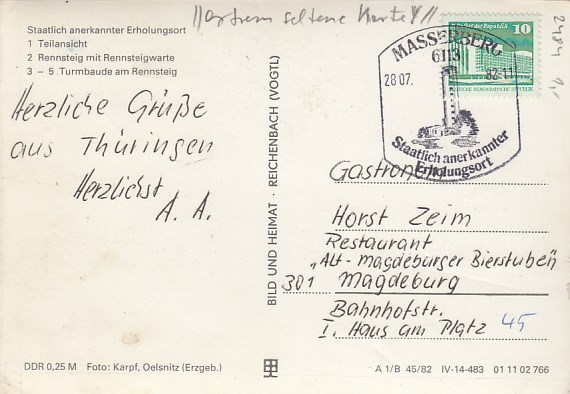 //extrem seltene Karte!//
2484
Staatlich anerkannter Erholungsort
1 Teilansicht
2 Rennsteig mit Rennsteigwarte
3 – 5 Turmbaude am Rennsteig
Herzliche Grüße
aus Thüringen
Herzlichst
A. A.
BILD UND HEIMAT · REICHENBACH (VOGTL)
10
MASSERBERG
6113
28.07. 82-11
Staatlich anerkannter
Erholungsort
Gastronom
Horst Zeim
Restaurant
„Alt-Magdeburger Bierstuben"
301 Magdeburg
Bahnhofstr.
I. Haus am Platz 45
DDR 0,25 M Foto: Karpf, Oelsnitz (Erzgeb.)
A 1/B 45/82 IV-14-483 01 11 02 766